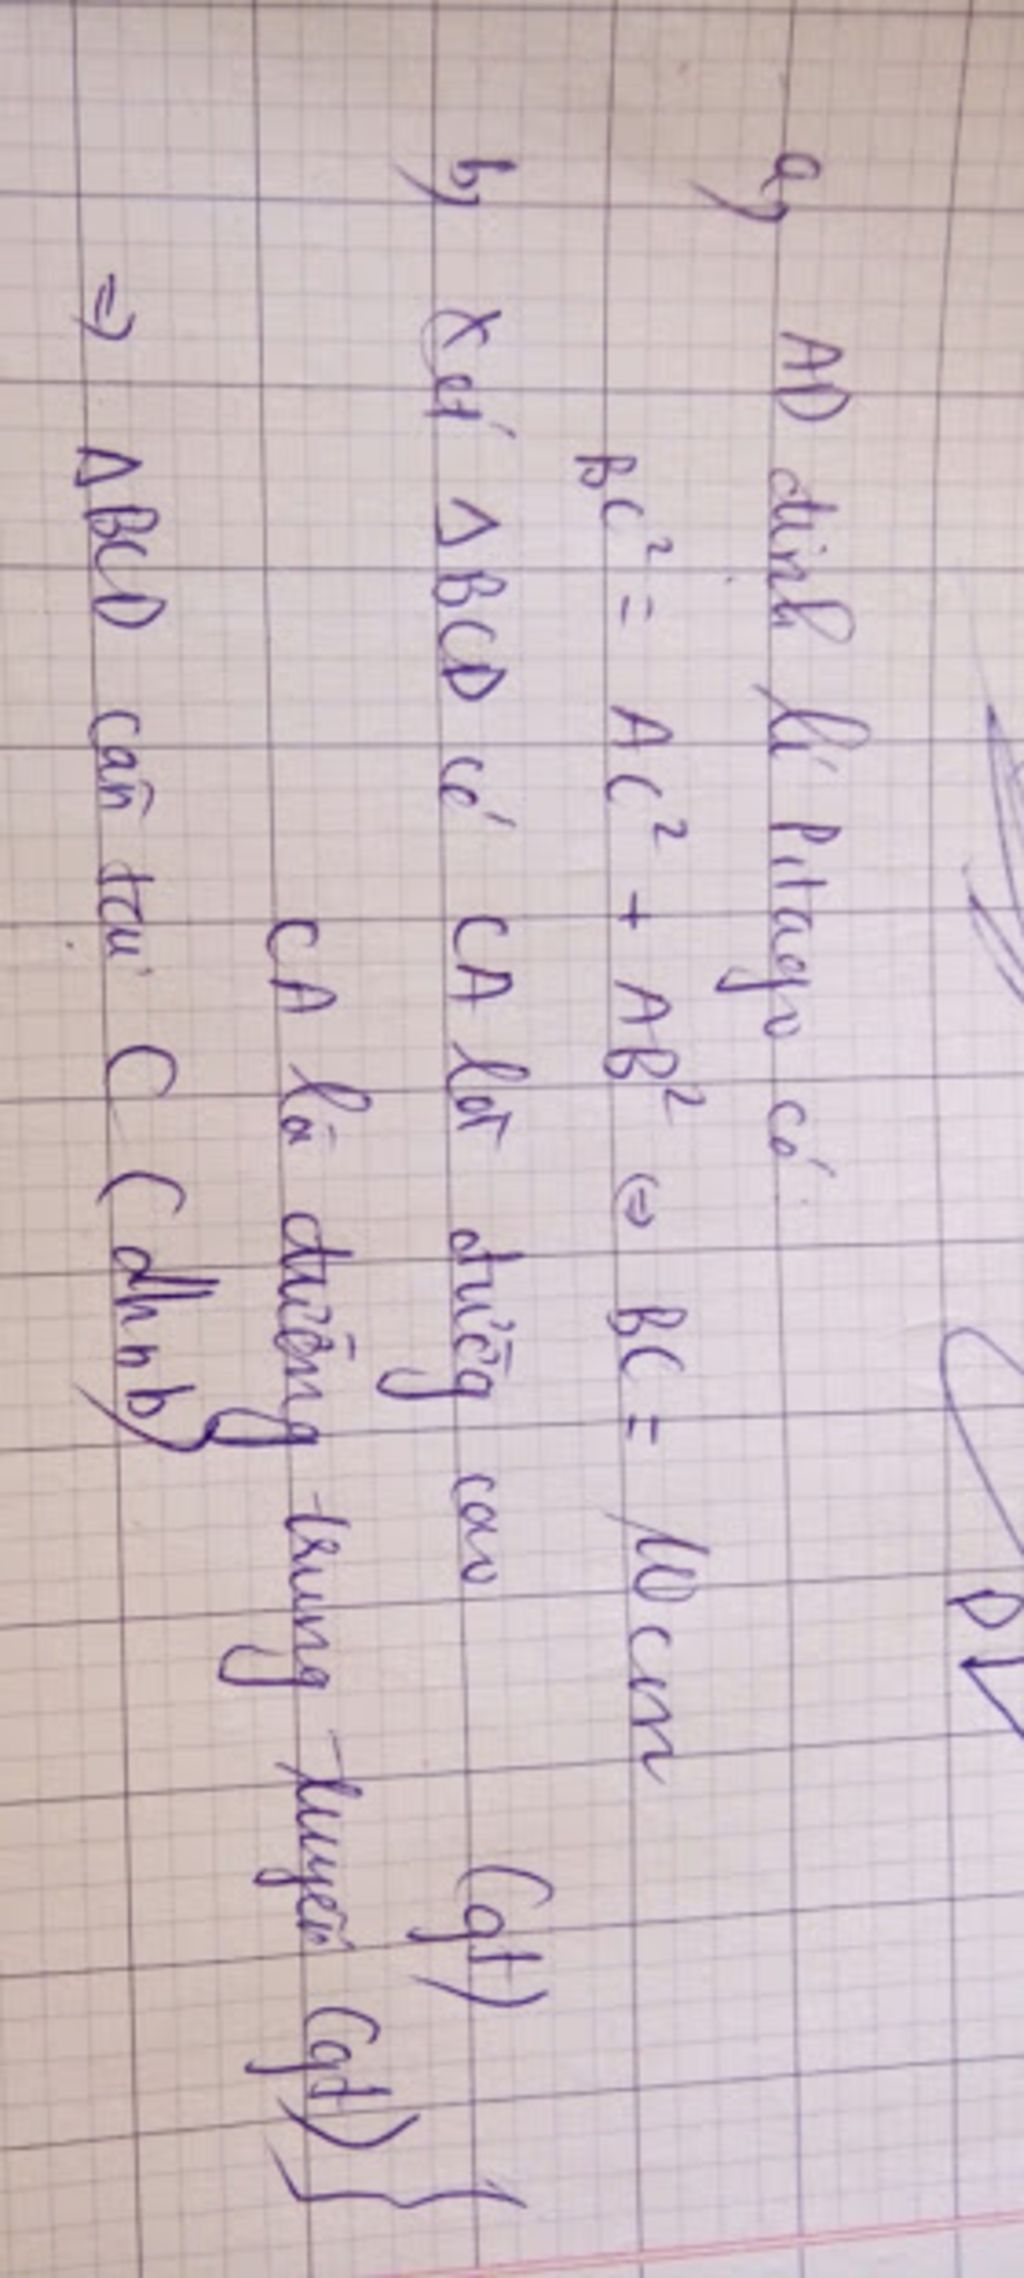 D
a, AD định lí Pitago có
BC² = AC² + AB² ⇔ BC = 10 cm
b, Xét ΔBCD có CA là đường cao (gt)
CA là đường trung tuyến (gt) }
⇒ ΔBCD cân tại C (dhnb)